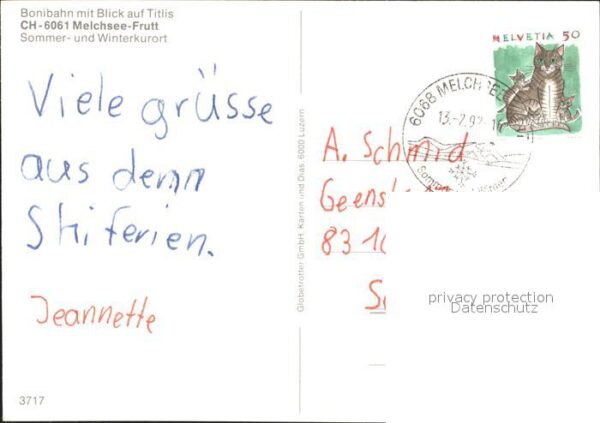 Bonibahn mit Blick auf Titlis
CH-6061 Melchsee-Frutt
Sommer- und Winterkurort
Viele grüsse
aus denn
Skiferien.
Jeannette
3717
Globetrotter GmbH, Karten und Dias, 6000 Luzern
HELVETIA 50
6068 MELCHSEE
13.-2.92
A. Schmid
83
privacy protection
Datenschutz